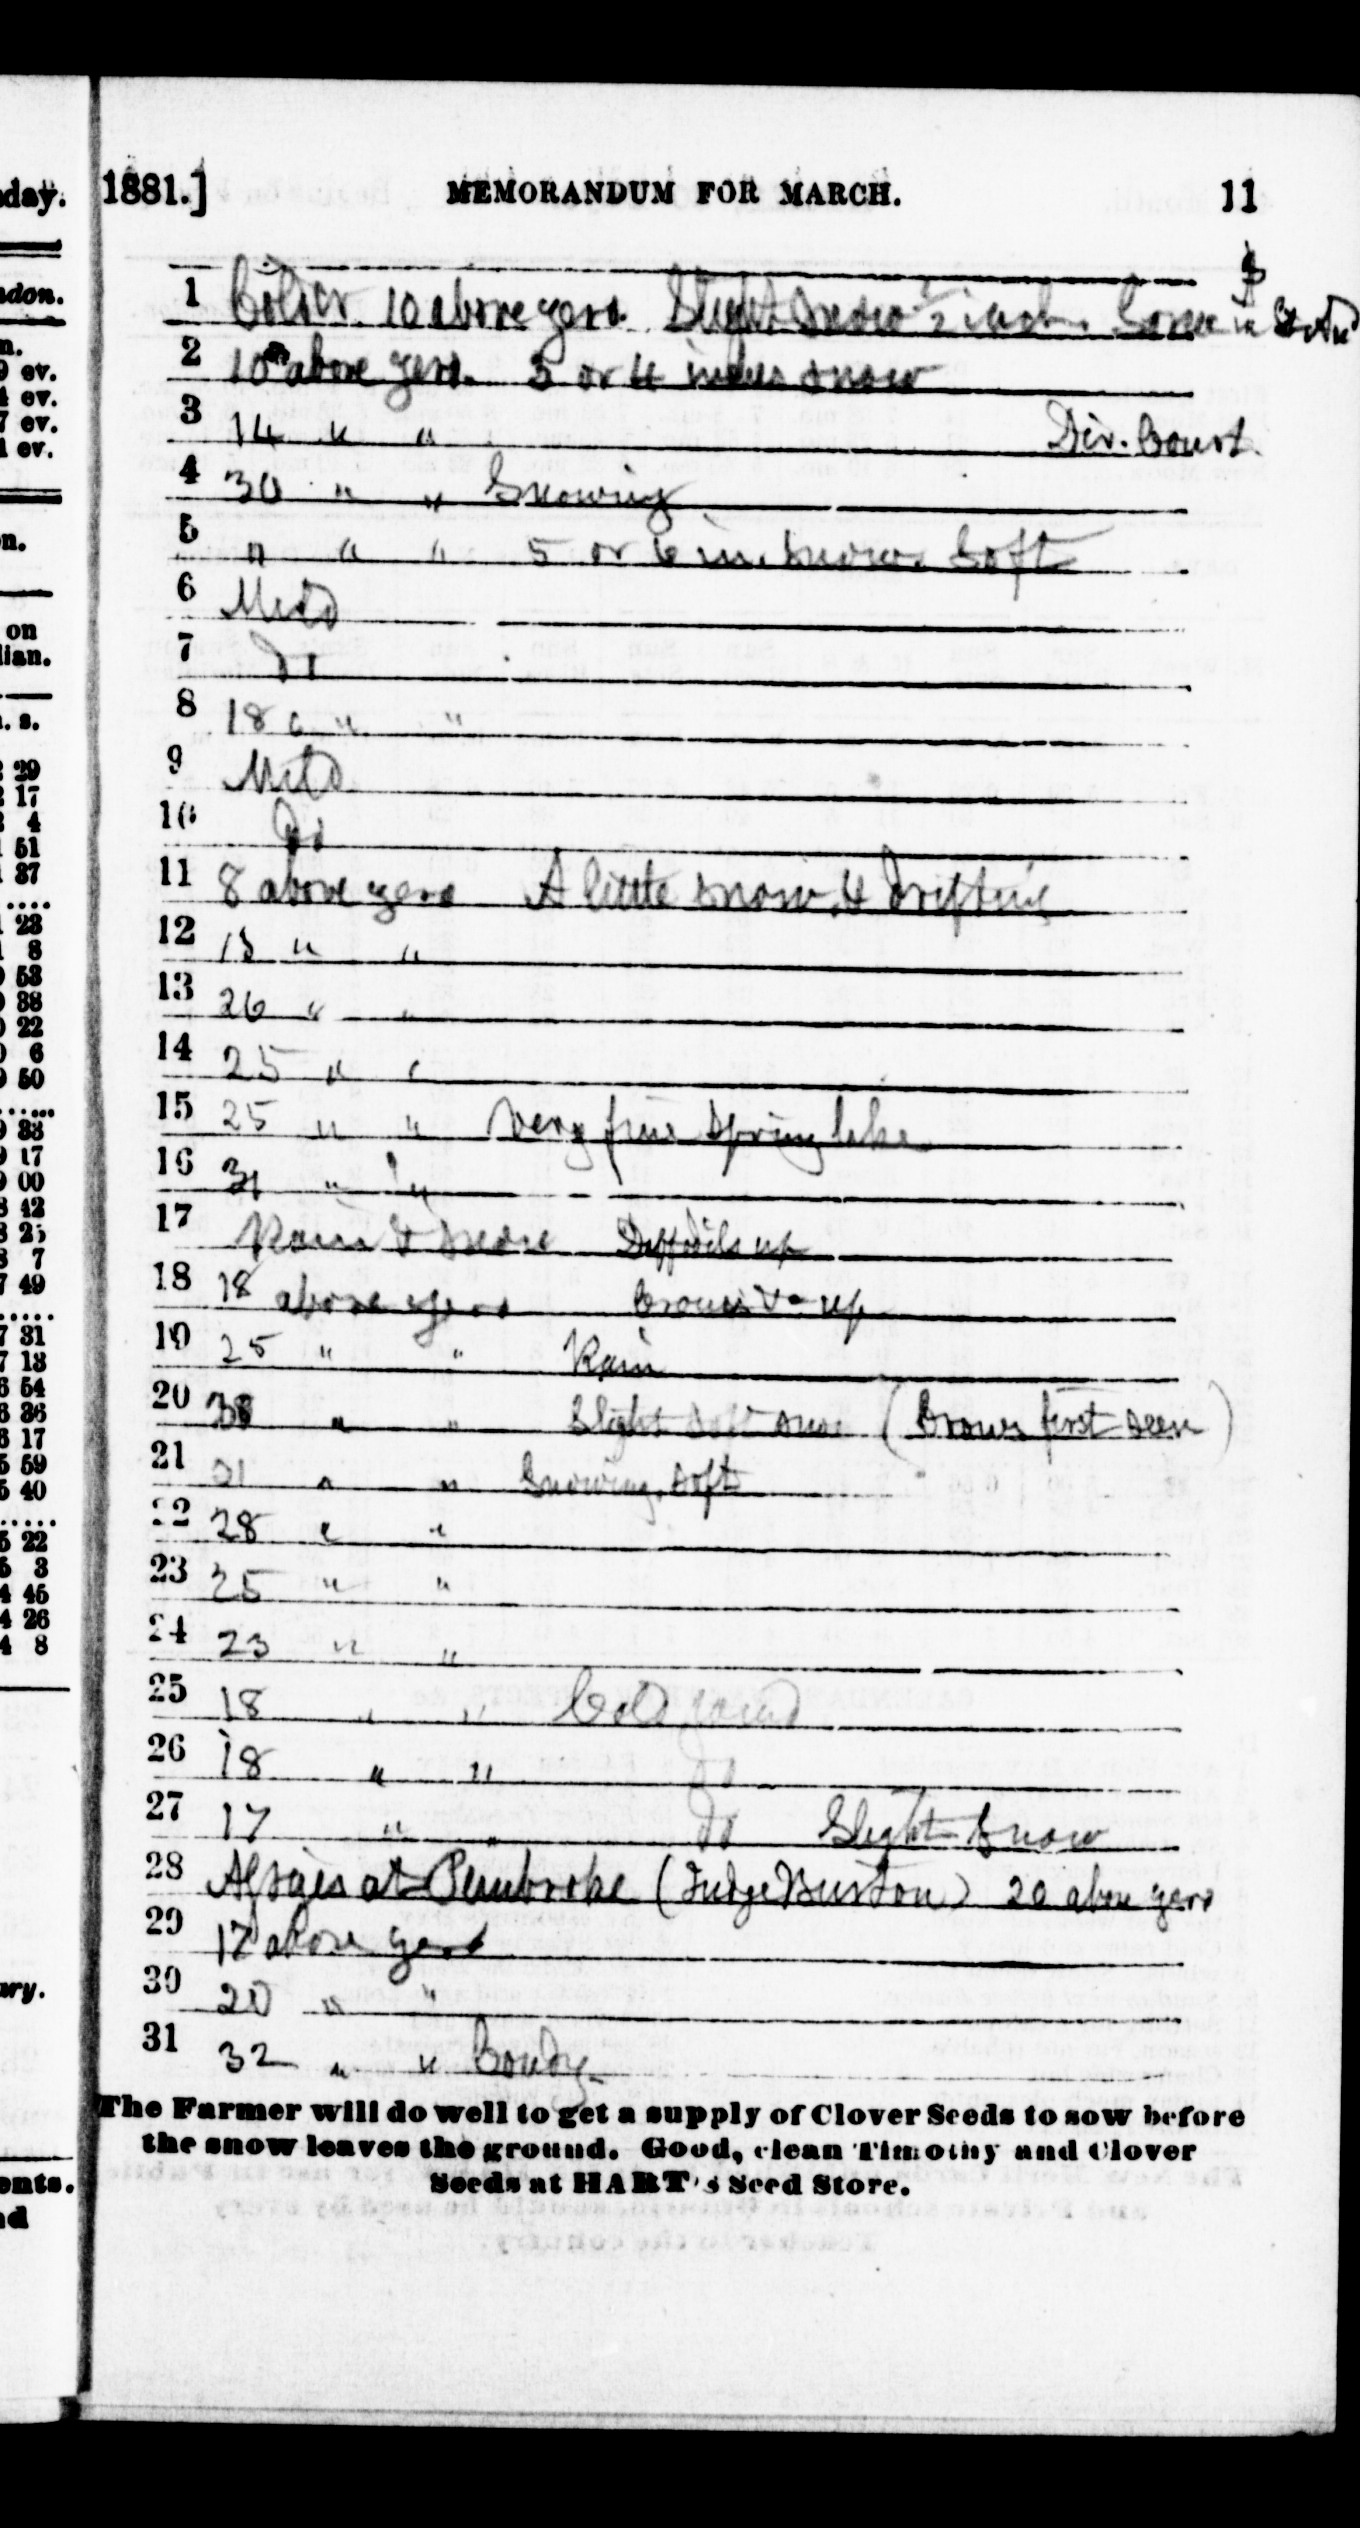 1881.] MEMORANDUM FOR MARCH. 11
$
1 Colder. 10 above zero. Slight snow 2 inch.
2 10 above zero. 3 or 4 inches snow
3 14 " " Div. Court.
4 30 " " Snowing
5 " " " 5 or 6 in. snow. Soft
6 Mild
7 Do
8 18 " "
9 Mild
10 Do
11 8 above zero A little snow & drifting
12 13 " "
13 26 " "
14 25 " "
15 25 " " Very fine spring like
16 31 " "
17 Rain & snow Daffodils up
18 18 above zero Crocus up
19 25 " " Rain
20 38 " " Slight soft snow (Crows first seen)
21 31 " " Snowing. Soft
22 28 " "
23 25 " "
24 23 " "
25 18 " " Cold wind
26 18 " " Do
27 17 " " Do Slight snow
28 Assizes at Pembroke (Judge Burton) 20 above zero
29 17 above zero
30 20 " "
31 32 " "
The Farmer will do well to get a supply of Clover Seeds to sow before
the snow leaves the ground. Good, clean Timothy and Clover
Seeds at HART's Seed Store.
day.
don.
n.
9 ev.
4 ev.
7 ev.
1 ev.
n.
on
lian.
. s.
29
17
4
51
37
....
23
8
53
38
22
6
50
......
33
17
00
42
25
7
49
......
31
13
54
36
17
59
40
......
22
3
45
26
8
ary.
ents.
nd